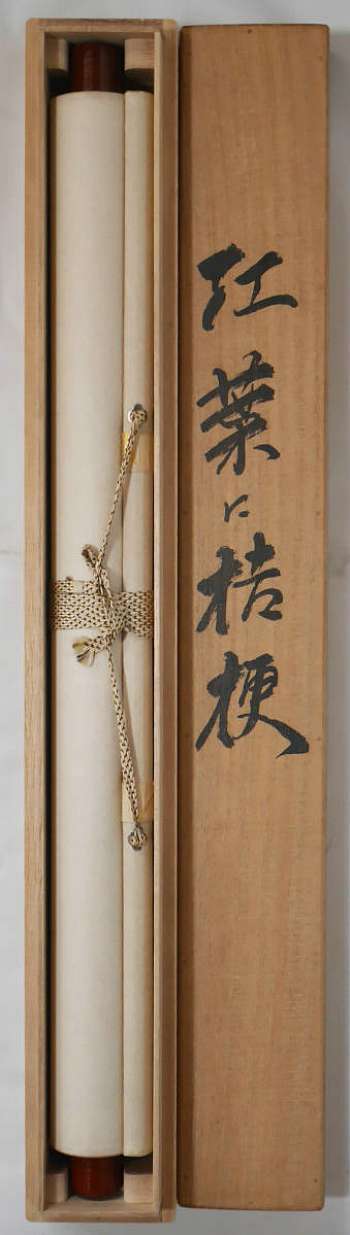 紅葉に桔梗